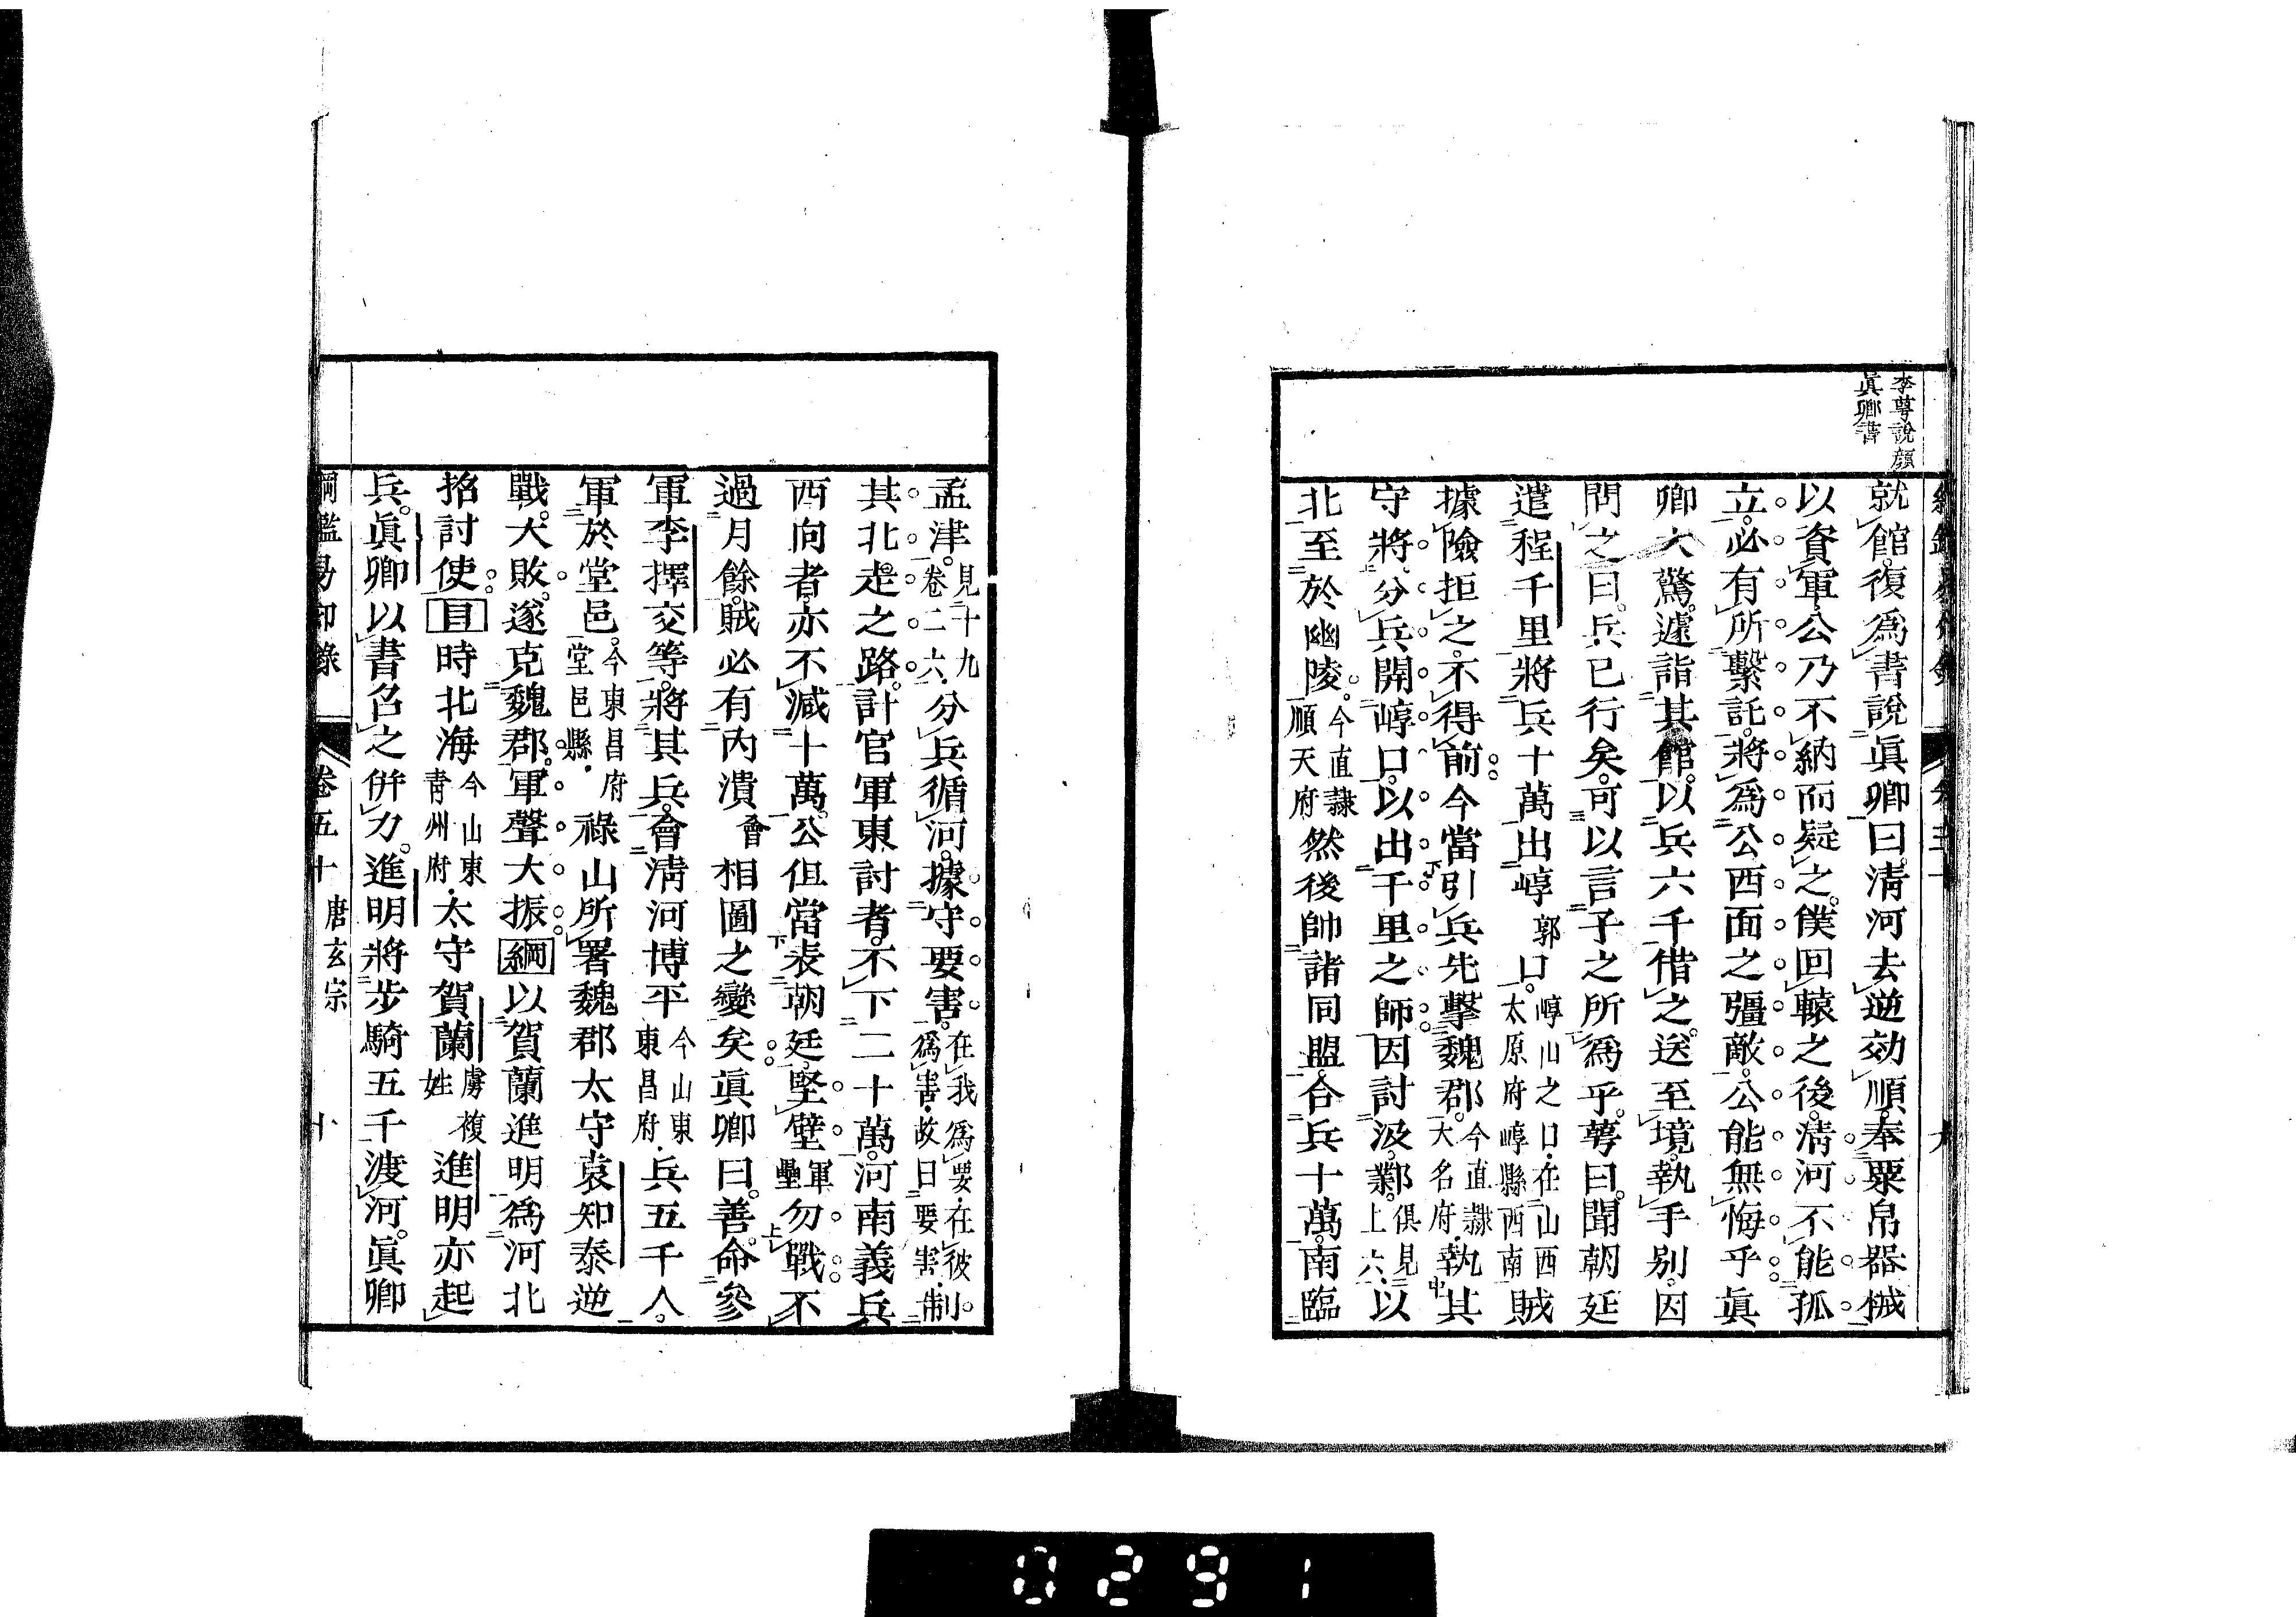 李萼說顏
眞卿書
就館復爲書說眞卿曰淸河去逆効順奉粟帛器械
以資軍公乃不納而疑之僕回轅之後淸河不能孤
立必有所繫託將爲公西面之彊敵公能無悔乎眞
卿大驚遽詣其館以兵六千借之送至境執手別因
問之曰兵已行矣可以言子之所爲乎萼曰聞朝廷
遣程千里將兵十萬出崞郭口崞山之口在山西太原府崞縣西南賊
據險拒之不得前今當引兵先擊魏郡今直隸大名府執其
守將分兵開崞口以出千里之師因討汲鄴俱見上六以
北至於幽陵今直隸順天府然後帥諸同盟合兵十萬南臨
孟津見十九卷二六分兵循河據守要害在我爲要在彼爲害故曰要害制
其北走之路計官軍東討者不下二十萬河南義兵
西向者亦不減十萬公但當表朝廷堅壁軍壘勿戰不
過月餘賊必有內潰會相圖之變矣眞卿曰善命參
軍李擇交等將其兵會淸河博平今山東東昌府兵五千人
軍於堂邑今東昌府堂邑縣祿山所署魏郡太守袁知泰逆
戰大敗遂克魏郡軍聲大振綱以賀蘭進明爲河北
招討使目時北海今山東靑州府太守賀蘭虜複姓進明亦起
兵眞卿以書召之併力進明將步騎五千渡河眞卿
綱鑑易知錄 卷五十 唐玄宗 十
0291